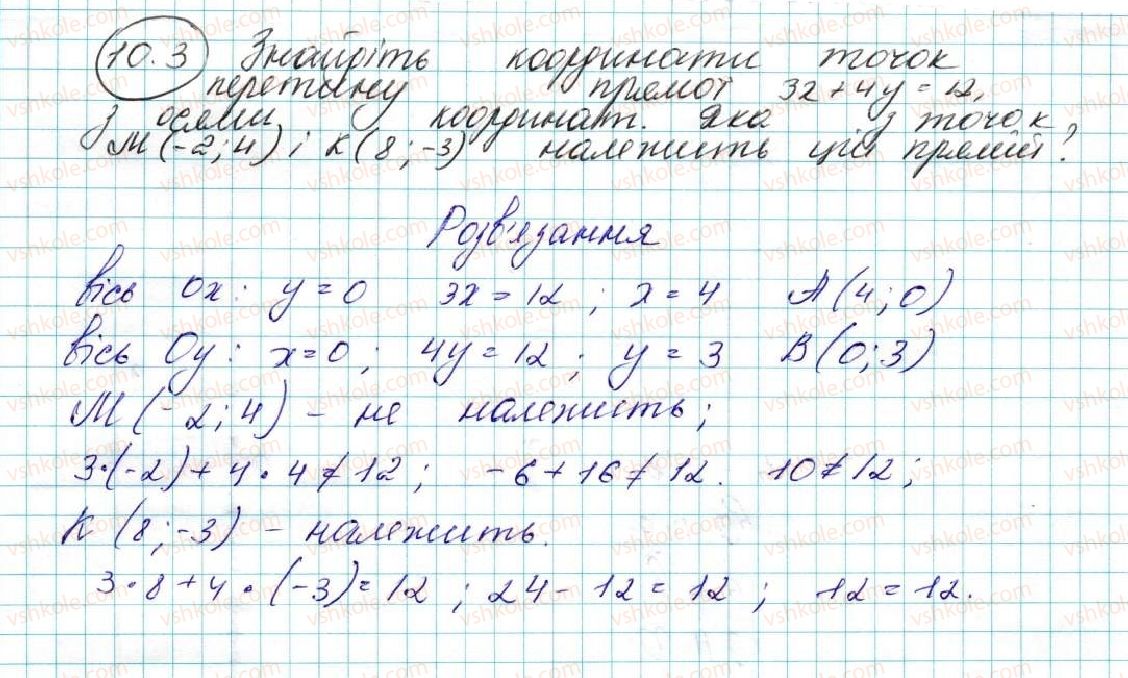 10.3 Знайдіть координати точок
перетину прямої 32 + 4y = 12,
з осями координат. Яка з точок
M(-2; 4) і K(8; -3) належить цій прямій?
Розв'язання
вісь Ox: y = 0 3x = 12; x = 4 A(4; 0)
вісь Oy: x = 0; 4y = 12; y = 3 B(0; 3)
M(-2; 4) - не належить;
3·(-2) + 4·4 ≠ 12; -6 + 16 ≠ 12. 10 ≠ 12;
K(8; -3) - належить.
3·8 + 4·(-3) = 12; 24 - 12 = 12; 12 = 12.
vshkole.com